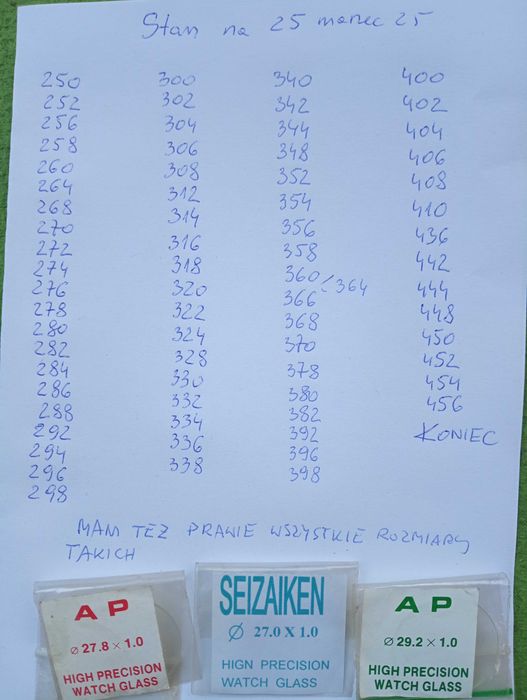 Stan na 25 marzec 25
250
252
256
258
260
264
268
270
272
274
276
278
280
282
284
286
288
292
294
296
298
300
302
304
306
308
312
314
316
318
320
322
324
328
330
332
334
336
338
340
342
344
348
352
354
356
358
360
366 < 364
368
370
378
380
382
392
396
398
400
402
404
406
408
410
436
442
444
448
450
452
454
456
KONIEC
MAM TEŻ PRAWIE WSZYSTKIE ROZMIARY
TAKICH
A P
Ø 27.8 × 1.0
HIGH PRECISION
WATCH GLASS
SEIZAIKEN
Ø 27.0 X 1.0
HIGN PRECISION
WATCH GLASS
A P
Ø 29.2 × 1.0
HIGH PRECISION
WATCH GLASS